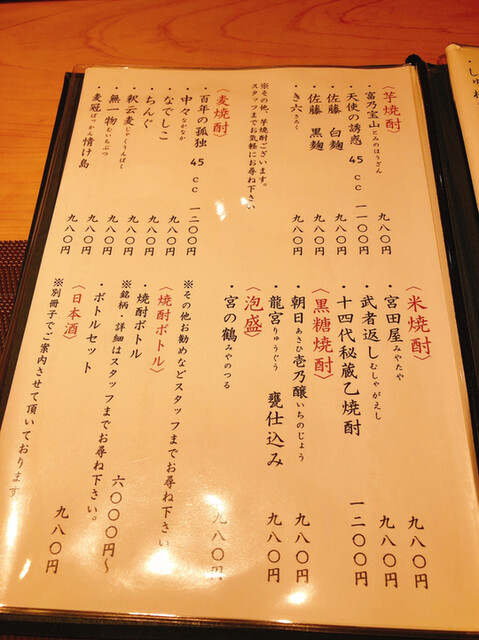 〈芋焼酎〉
・富乃宝山とみのほうざん 九八〇円
・天使の誘惑 45cc 一一〇〇円
・佐藤 白麹 九八〇円
・佐藤 黒麹 九八〇円
・き六きろく 九八〇円
※その他、芋焼酎ございます。
スタッフまでお気軽にお尋ね下さい
〈麦焼酎〉
・百年の孤独 45cc 一二〇〇円
・中々なかなか 九八〇円
・なでしこ 九八〇円
・ちんぐ 九八〇円
・釈云麦じゃくうんばく 九八〇円
・無一物むいちぶつ 九八〇円
・麦冠ばっかん情け島 九八〇円
〈米焼酎〉
・宮田屋みやたや 九八〇円
・武者返しむしゃがえし 九八〇円
・十四代秘蔵乙焼酎 一二〇〇円
〈黒糖焼酎〉
・朝日あさひ壱乃醸いちのじょう 九八〇円
・龍宮りゅうぐう 甕仕込み 九八〇円
〈泡盛〉
・宮の鶴みやのつる 九八〇円
※その他お勧めなどスタッフまでお尋ね下さい
〈焼酎ボトル〉
・焼酎ボトル 六〇〇〇円〜
※銘柄・詳細はスタッフまでお尋ね下さい。
・ボトルセット 九八〇円
〈日本酒〉
※別冊子でご案内させて頂いております